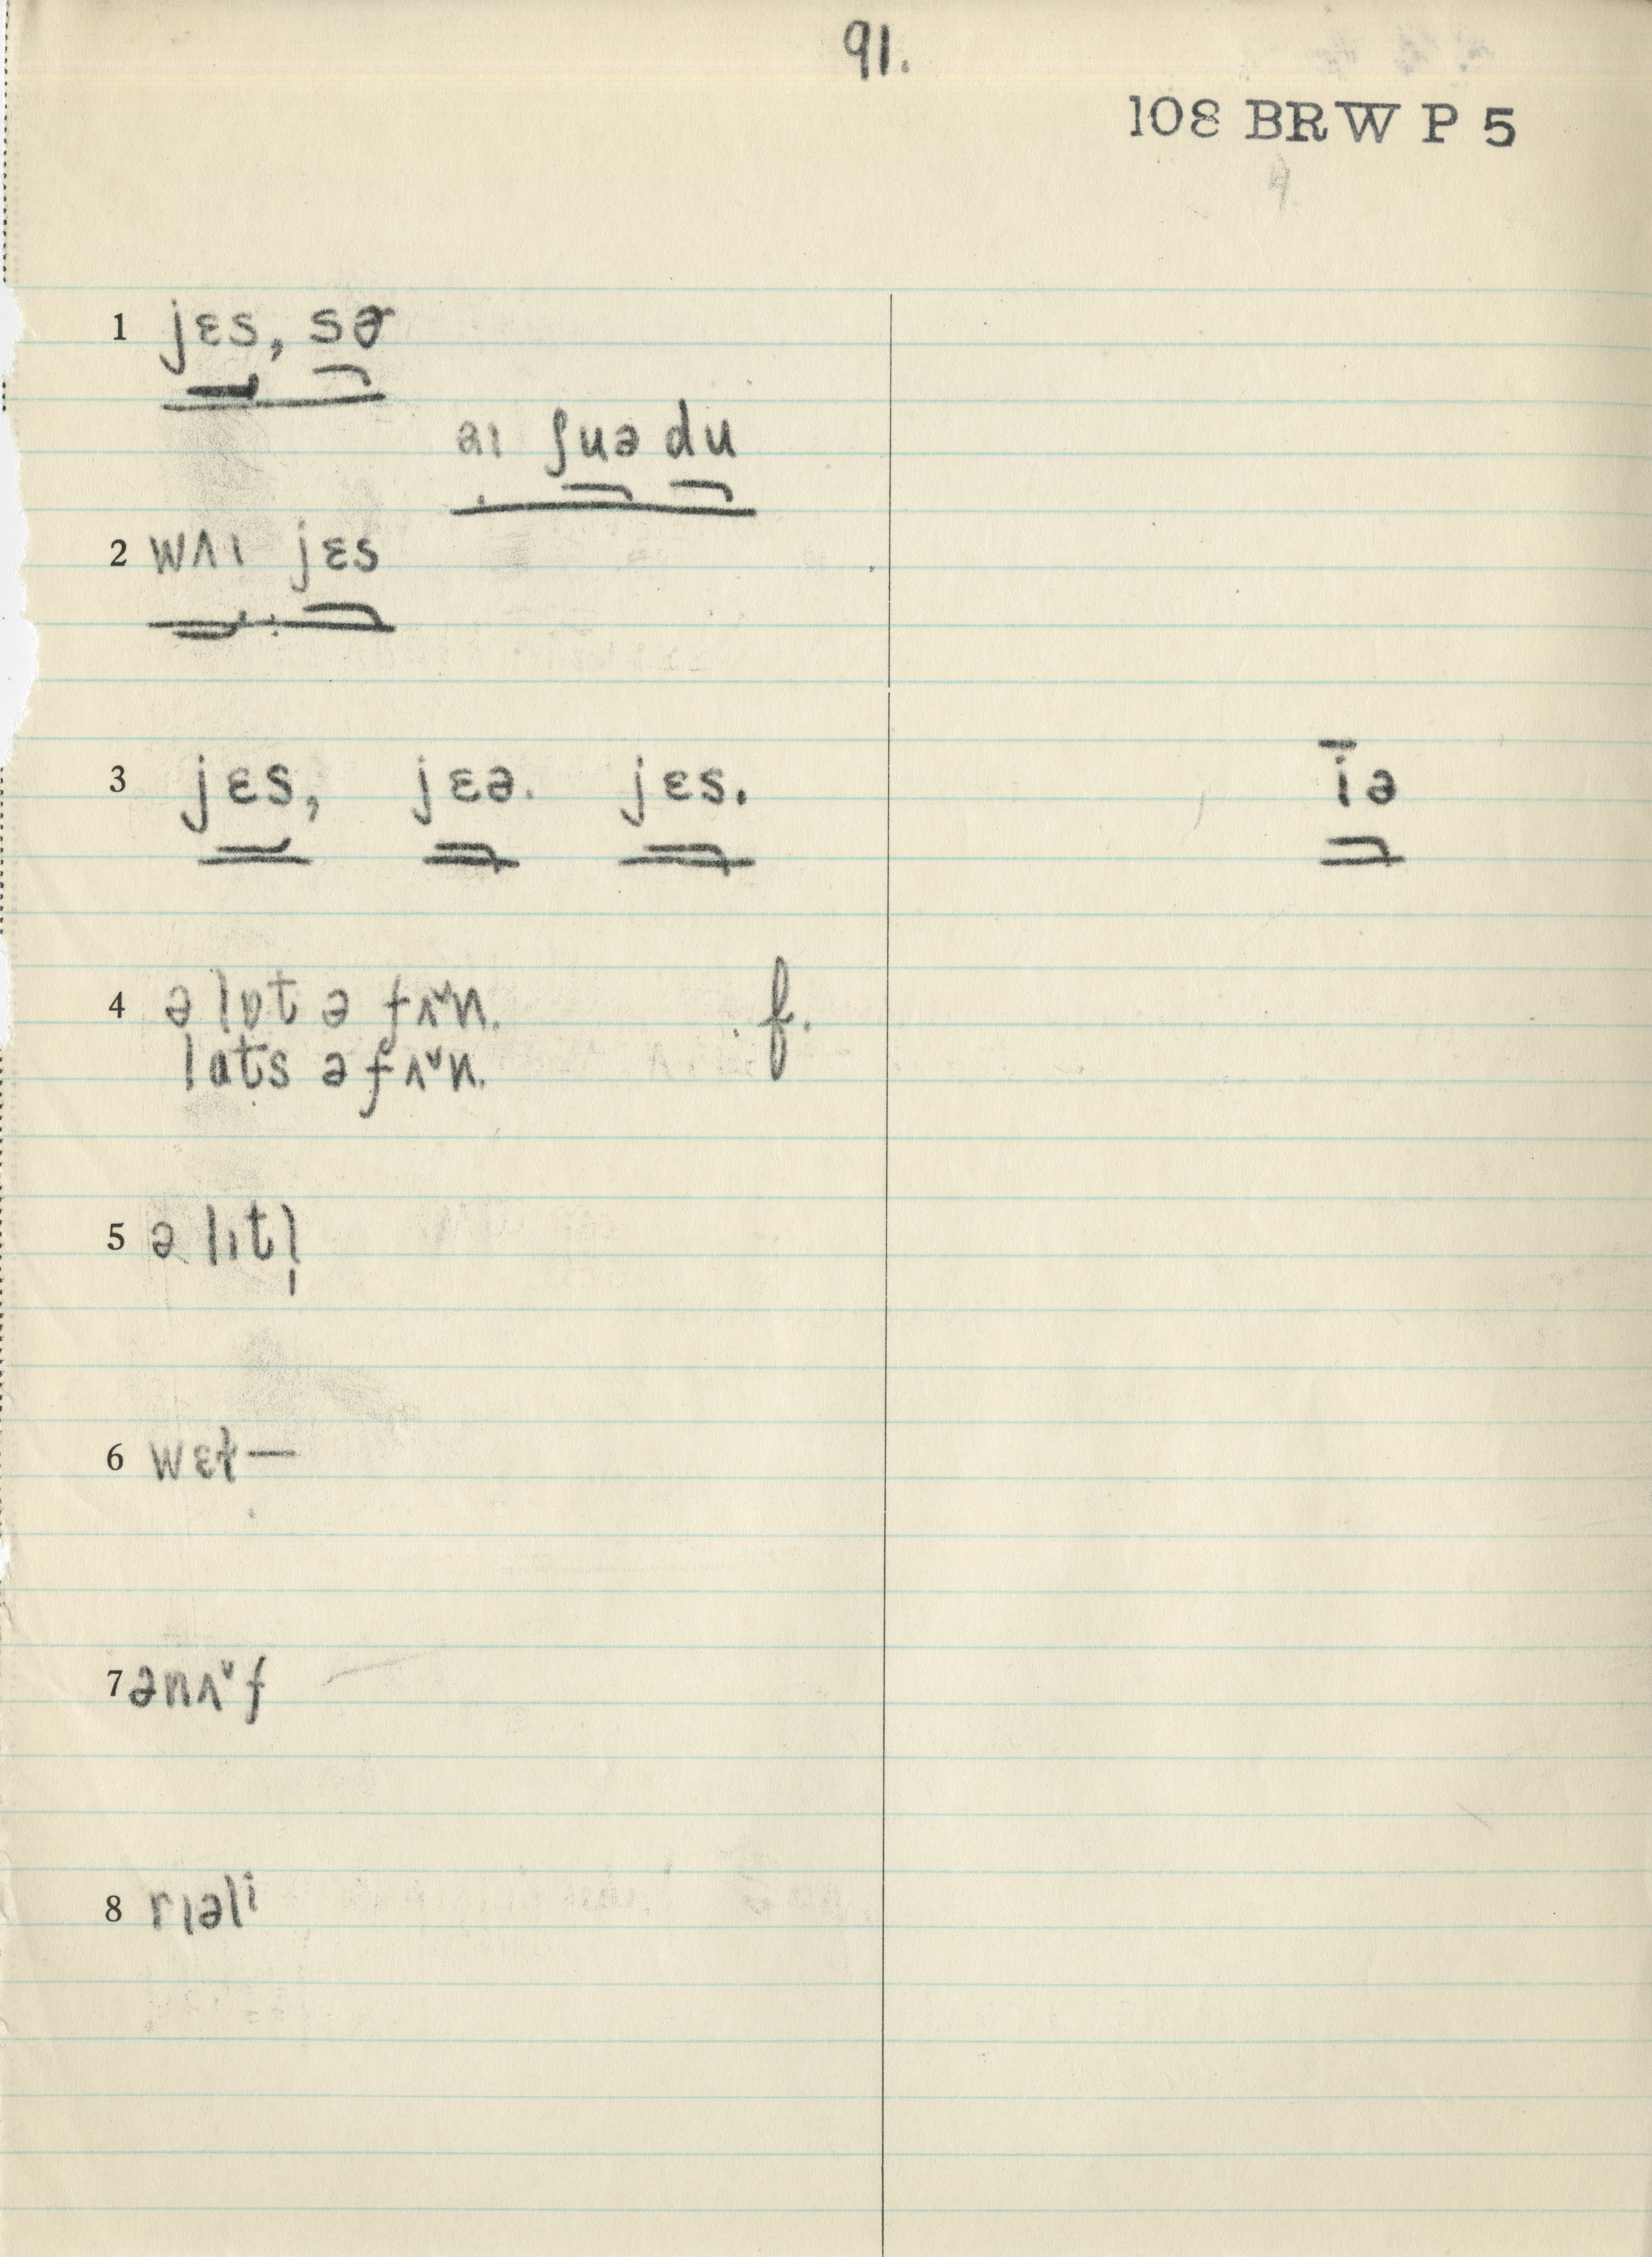 91.
108 BRW P 5
4
1 jɛs, sɚ
aɪ ʃuə du
2 wʌɪ jɛs
3 jɛs, jɛə. jɛs. īə
4 ə lɒt ə fʌ˅n. f.
lɑts ə fʌ˅n.
5 ə lɪtl̩
6 wɛɫ—
7 ənʌ˅f
8 rɪəli